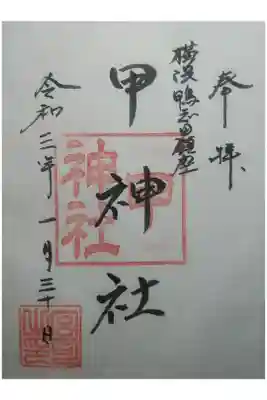 奉拝
横浜鴨志田鎮座
甲神社
甲神社
令和三年一月三十日